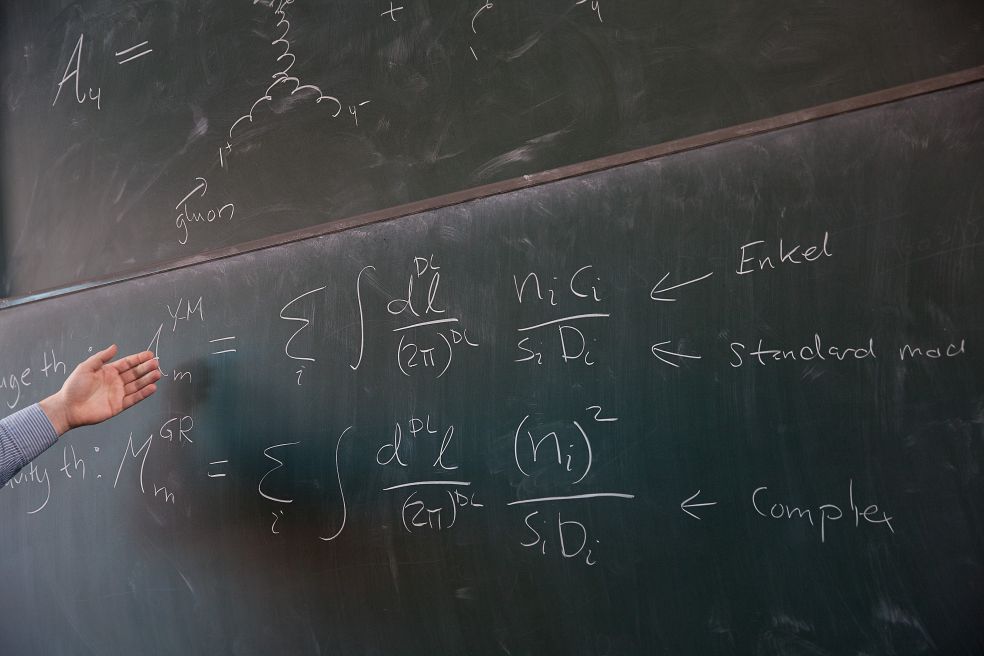 A₄ =
+
4⁻
1⁺
gluon
Enkel
uge th: A_m^YM = Σ_i ∫ d^DL l / (2π)^DL n_i c_i / S_i D_i
standard mod
avity th: M_m^GR = Σ_i ∫ d^DL l / (2π)^DL (n_i)² / S_i D_i
Complex